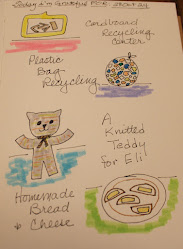 Today I'm Grateful FOR
Cardboard
Recycling
Center
Plastic
Bag
Recycling
A
Knitted
Teddy
for Eli
Homemade
Bread
& Cheese